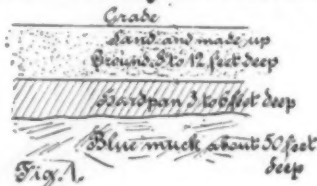 Grade
Sand and made up
Ground 5 to 12 feet deep
Hardpan 3 to 6 feet deep
Blue muck about 50 feet
deep
Fig. 1.